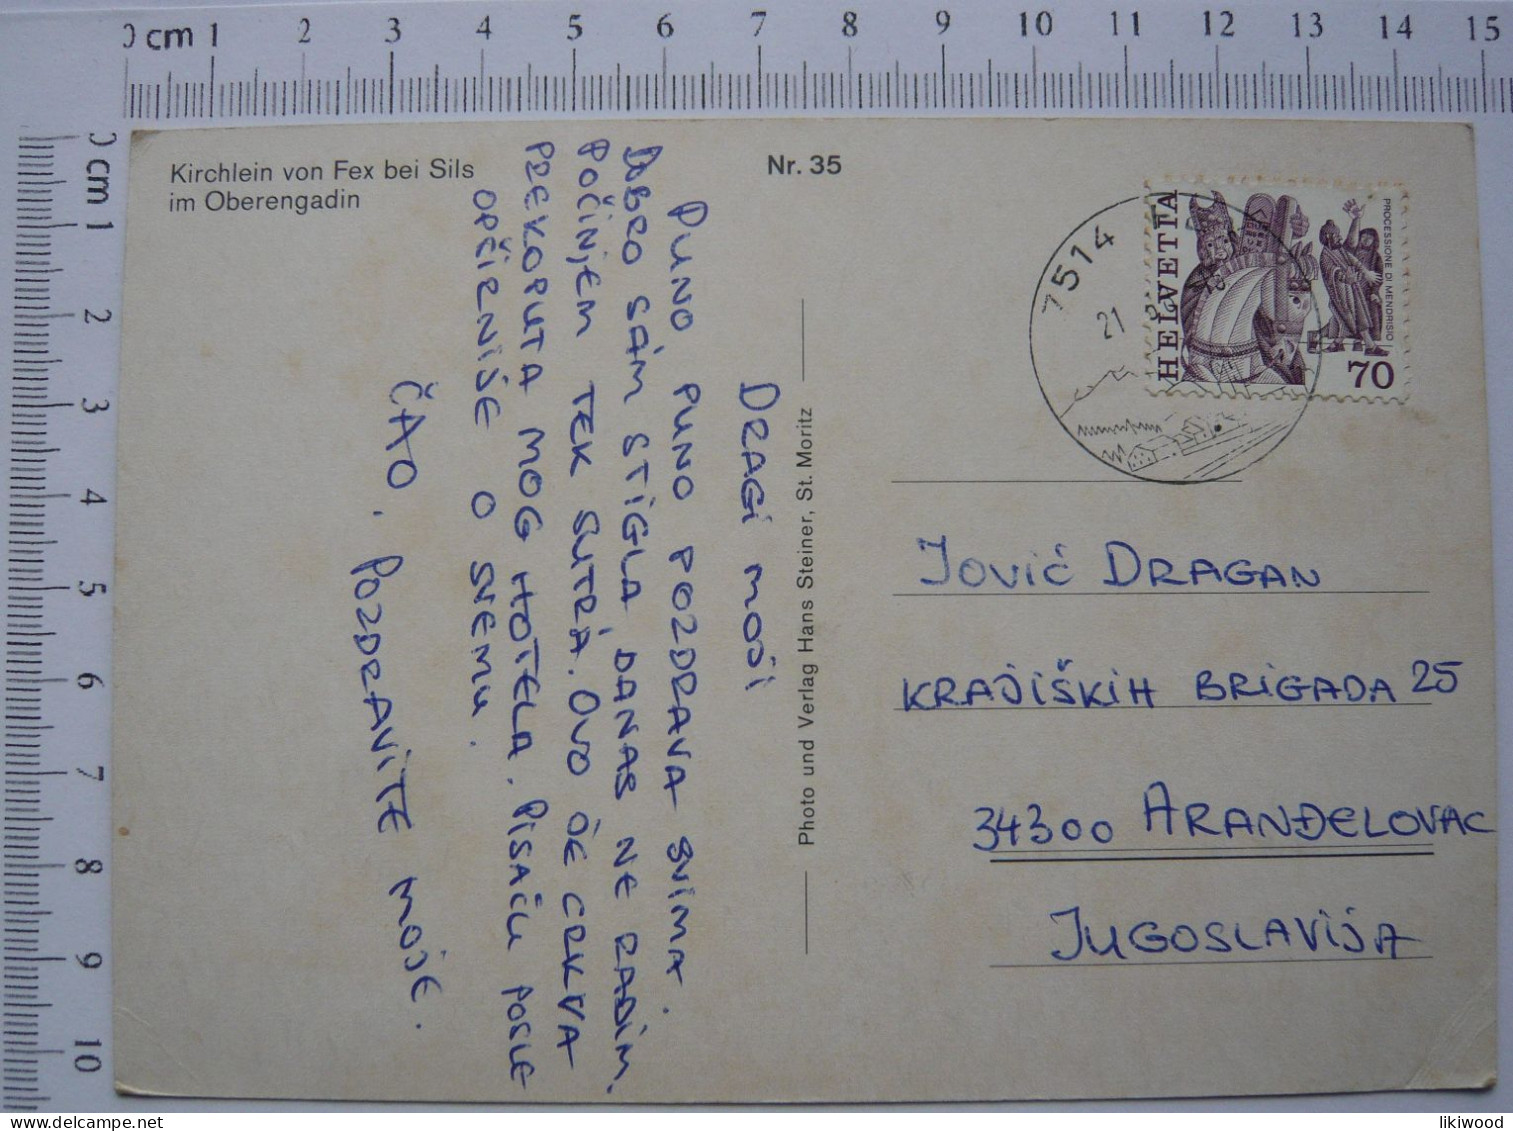 0 cm 1 2 3 4 5 6 7 8 9 10 11 12 13 14 15
0 cm 1 2 3 4 5 6 7 8 9 10
Kirchlein von Fex bei Sils
im Oberengadin
Nr. 35
DRAGI MOJI
PUNO PUNO POZDRAVA SVIMA.
DOBRO SAM STIGLA, DANAS NE RADIM.
POČINJEM TEK SUTRA. OVO JE CRKVA
PREKOPUTA MOG HOTELA. PISAĆU POSLE
OPŠIRNIJE O SVEMU.
ČAO. POZDRAVITE MOJE.
Photo und Verlag Hans Steiner, St. Moritz
7514
21
HELVETIA
PROCESSIONE DI MENDRISIO
70
JOVIĆ DRAGAN
KRAJIŠKIH BRIGADA 25
34300 ARANĐELOVAC
JUGOSLAVIJA
likiwood